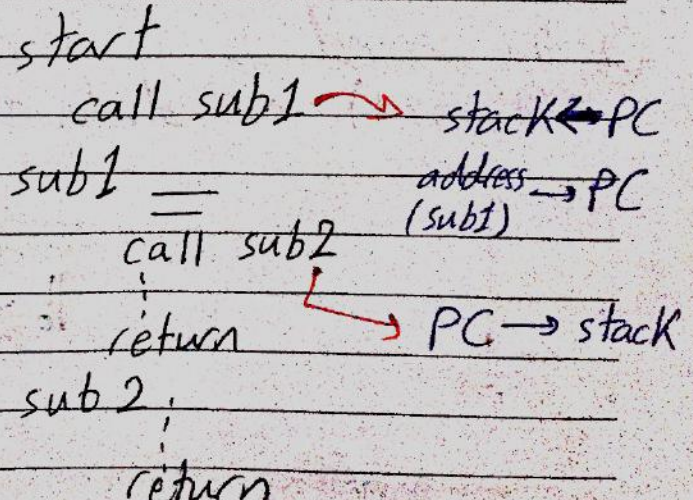 start
call sub1 → stack ← PC
sub1 address → PC
(sub1)
call sub2
return PC → stack
sub2
return